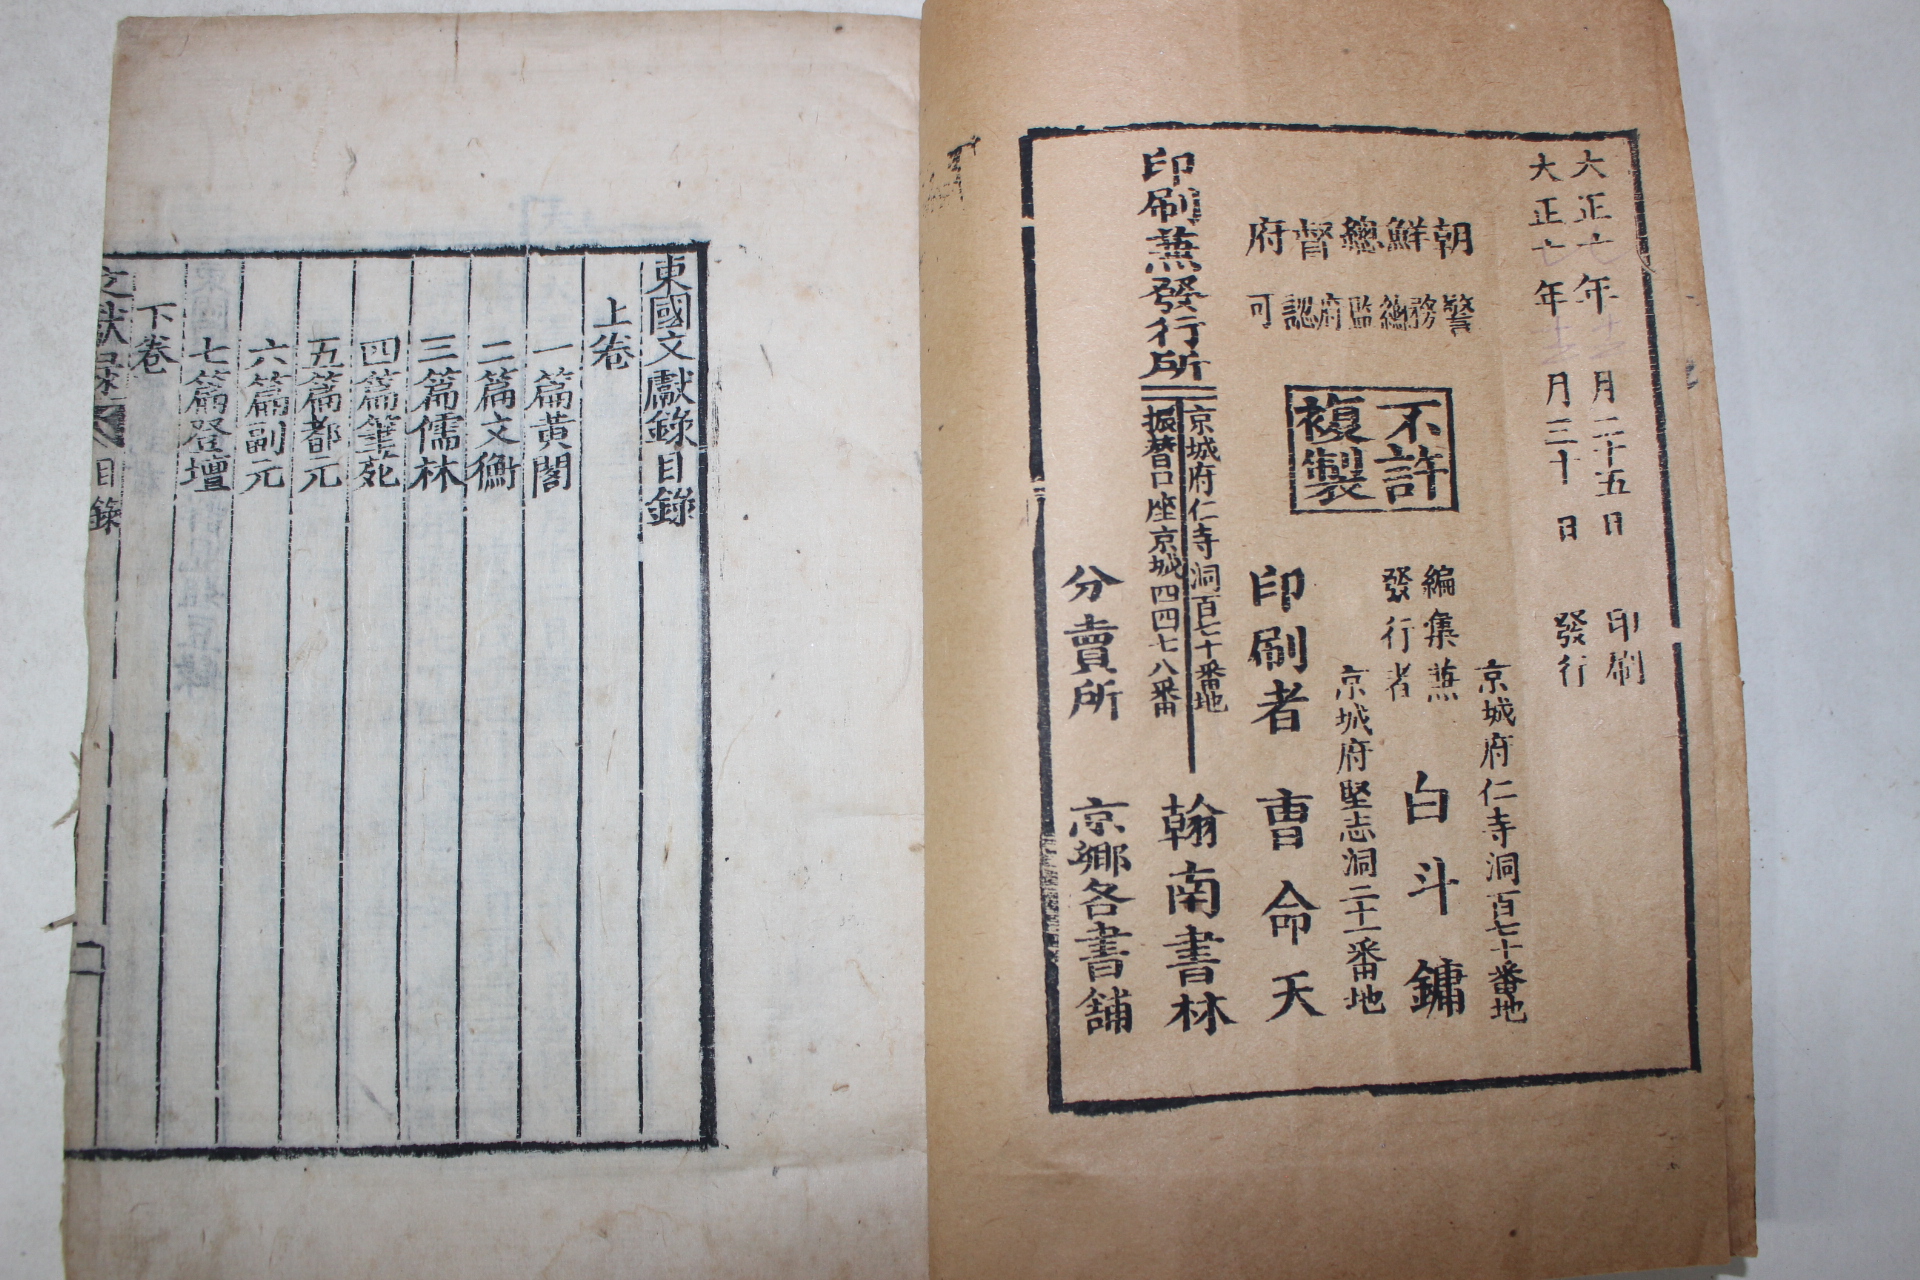 大正七年十一月二十五日 印刷
大正七年十一月三十日 發行
朝鮮總督府
警務總監府認可
不許
複製
京城府仁寺洞百七十番地
編集蕪
發行者 白斗鏞
京城府堅志洞二十一番地
印刷者 曺命天
印刷蕪發行所
京城府仁寺洞百七十番地
振替口座京城四四七八番
翰南書林
分賣所 京鄉各書舖
東國文獻錄目錄
上卷
一篇黃閣
二篇文衡
三篇儒林
四篇筆苑
五篇都元
六篇副元
七篇登壇
下卷
文獻錄 目錄